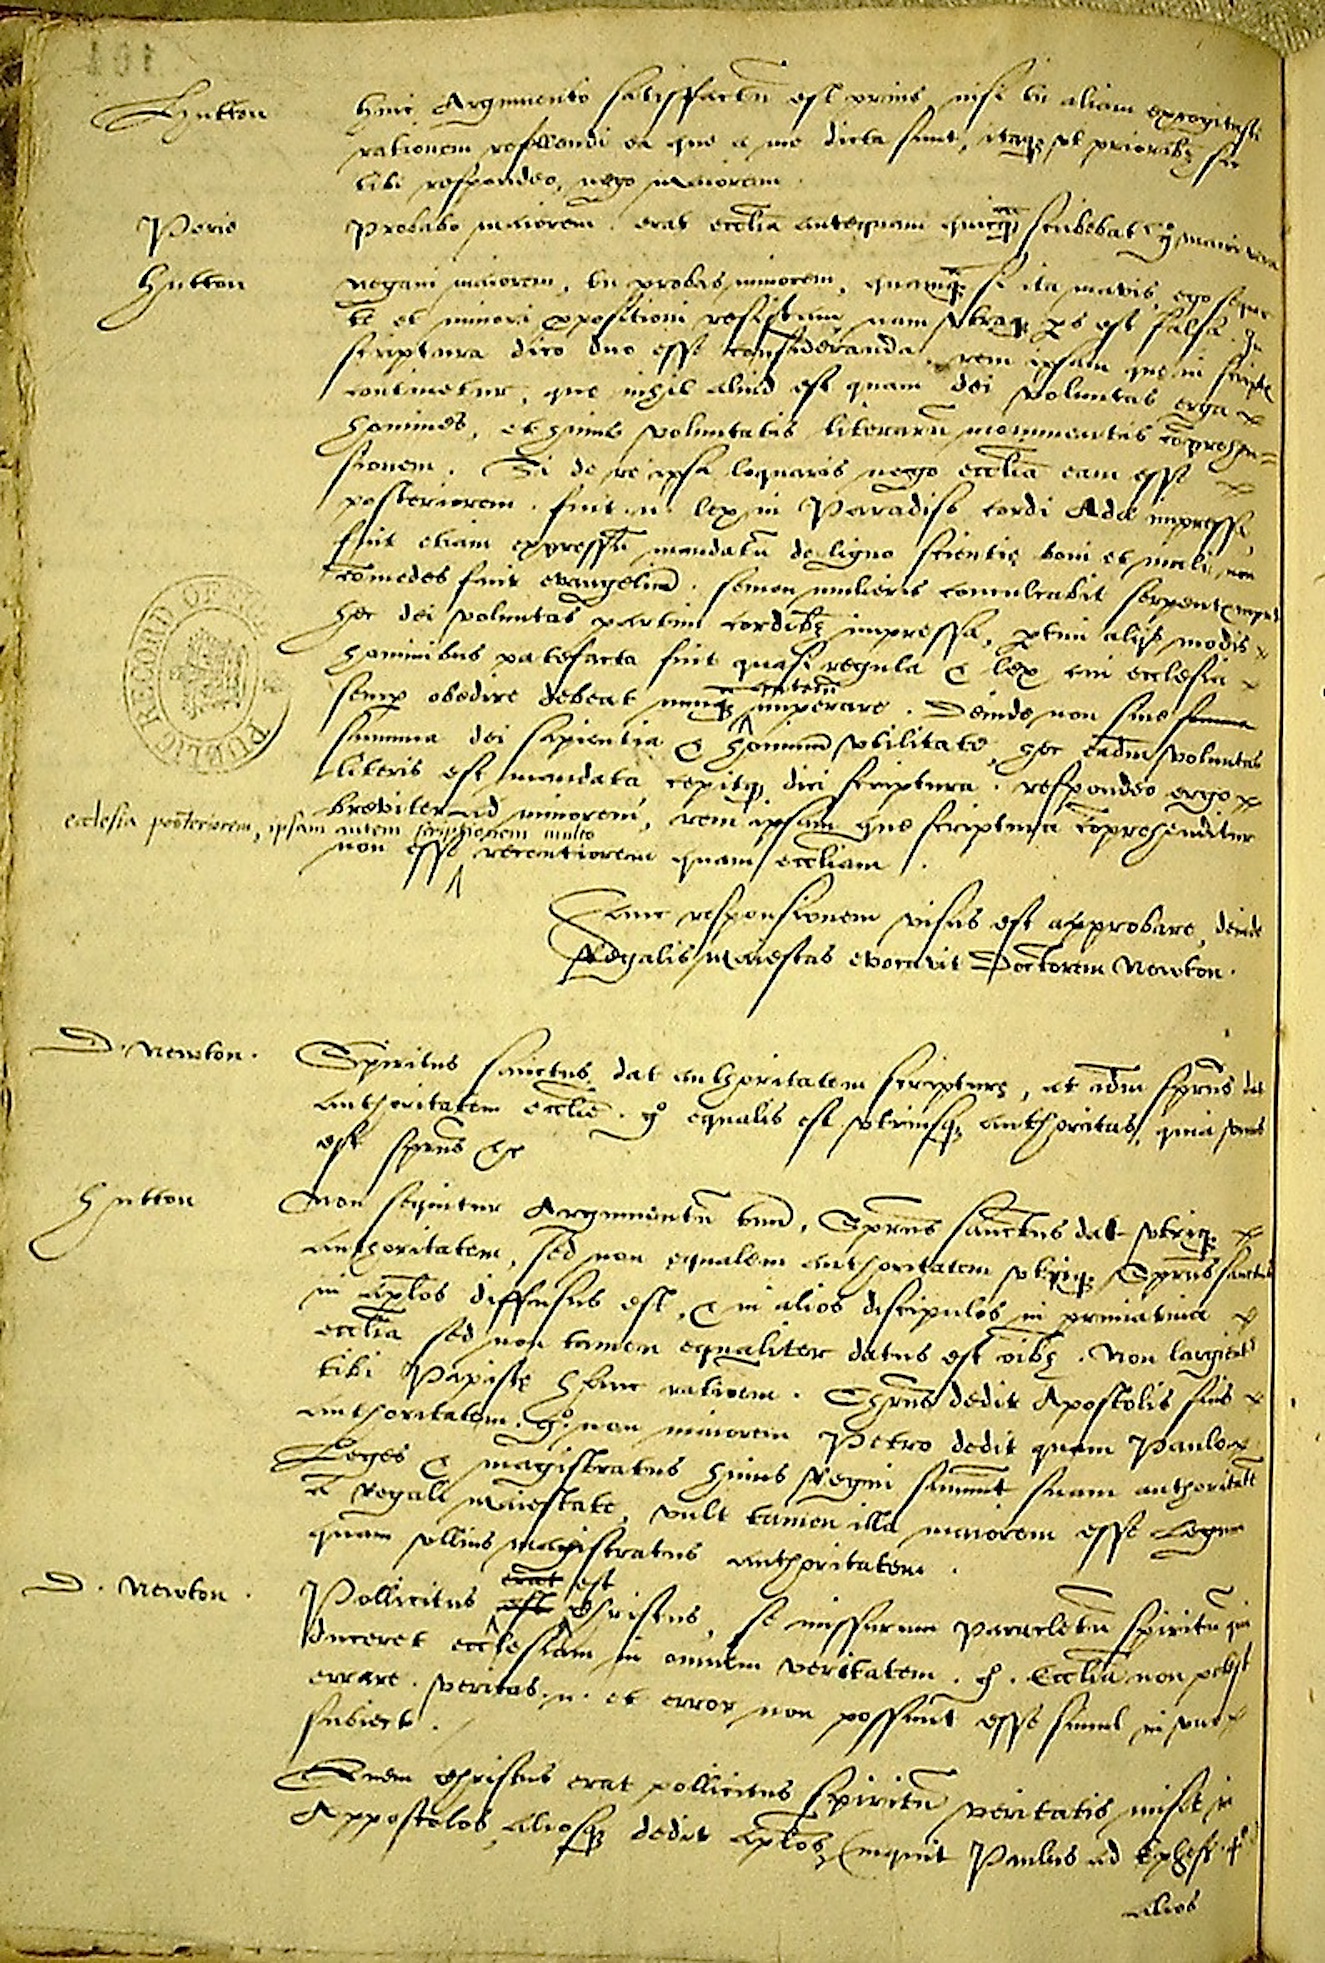 Hutton huic Argumento satisfactũ est prius, nisi tu aliam excogitasti
rationem refellendi ea que a me dicta sunt, itaq; ut priorib; sic
tibi respondeo, nego maiorem.
Perie Probabo maiorem. erat ecclia antequam quicq̃ scribebat
Hutton negavi maiorem, tu probas minorem, quamq̃ si ita mavis, ego
et minori propositioni resistam nam utraq; ps est falsa. In
scriptura dico duo esse consideranda. rem ipsam que in scripto
continetur, que nihil aliud est quam dei voluntas erga
homines, et huius voluntatis literarũ monumentis cõprehen=
sionem. Si de re ipsa loquaris nego eccliã eam esse
posteriorem. fuit .n. lex in Paradiso cordi Adæ impressa,
fuit etiam expressũ mandatũ de ligno scientię boni et mali, non
comedes fuit evangeliũ. semen mulieris conculcabit serpentis caput
hec dei voluntas partim cordib; impressa, ptim alijs modis
hominibus patefacta fuit quasi regula & lex cui ecclesia
semp obedire debeat nunq̃ autem imperare. Deinde non sine summa
summa dei sapientia & hominũ utilitate, hec eadm voluntas
literis est mandata cepitq; dici scriptura. respondeo ergo
breviter ad minorem, rem ipsam que scriptura cõprehenditur
ecclesia posteriorem, ipsam autem scriptionem multo
non esse recentiorem quam eccliam.
Hanc responsionem visus est approbare, deinde
Regalis Maiestas evocavit Doctorem Newton.
D. Newton. Spiritus sanctus dat authoritatem scripturę, at idm sprũs dat
authoritatem ecclię. gº equalis est utriusq; authoritas, quia unus
est sprũs &c
Hutton Non sequitur Argumentũ tuũ, Sprũs sanctus dat utriq;
authoritatem, sed non equalem authoritatem utriq; Sprũs sanctus
in aplos diffusus est, & in alios discipulos in primativa
ecclia sed non tamen equaliter datus est oib;. Non largientur
tibi Papistę hanc rationem. Chrũs dedit Apostolis suis
authoritatem. gº. non maiorem Petro dedit quam Paulo
Leges & magistratus huius Regni sumunt suam authoritatẽ
a Regali maiestate, vult tamen illa maiorem esse Legum
quam ullius magistratus authoritatem.
D. Newton. Pollicitus est erat est Christus, se missurum paracletũ spiritũ qui
duceret ecclesiam in omnem veritatem. g. Ecclia non potest
errare. veritas .n. et error non possunt esse simul in uno
subiecto.
Quem Christus erat pollicitus spiritũ veritatis misit in
Appostolos, aliosq; dedit aplos, (inquit Paulus ad Ephes. 4º
alios